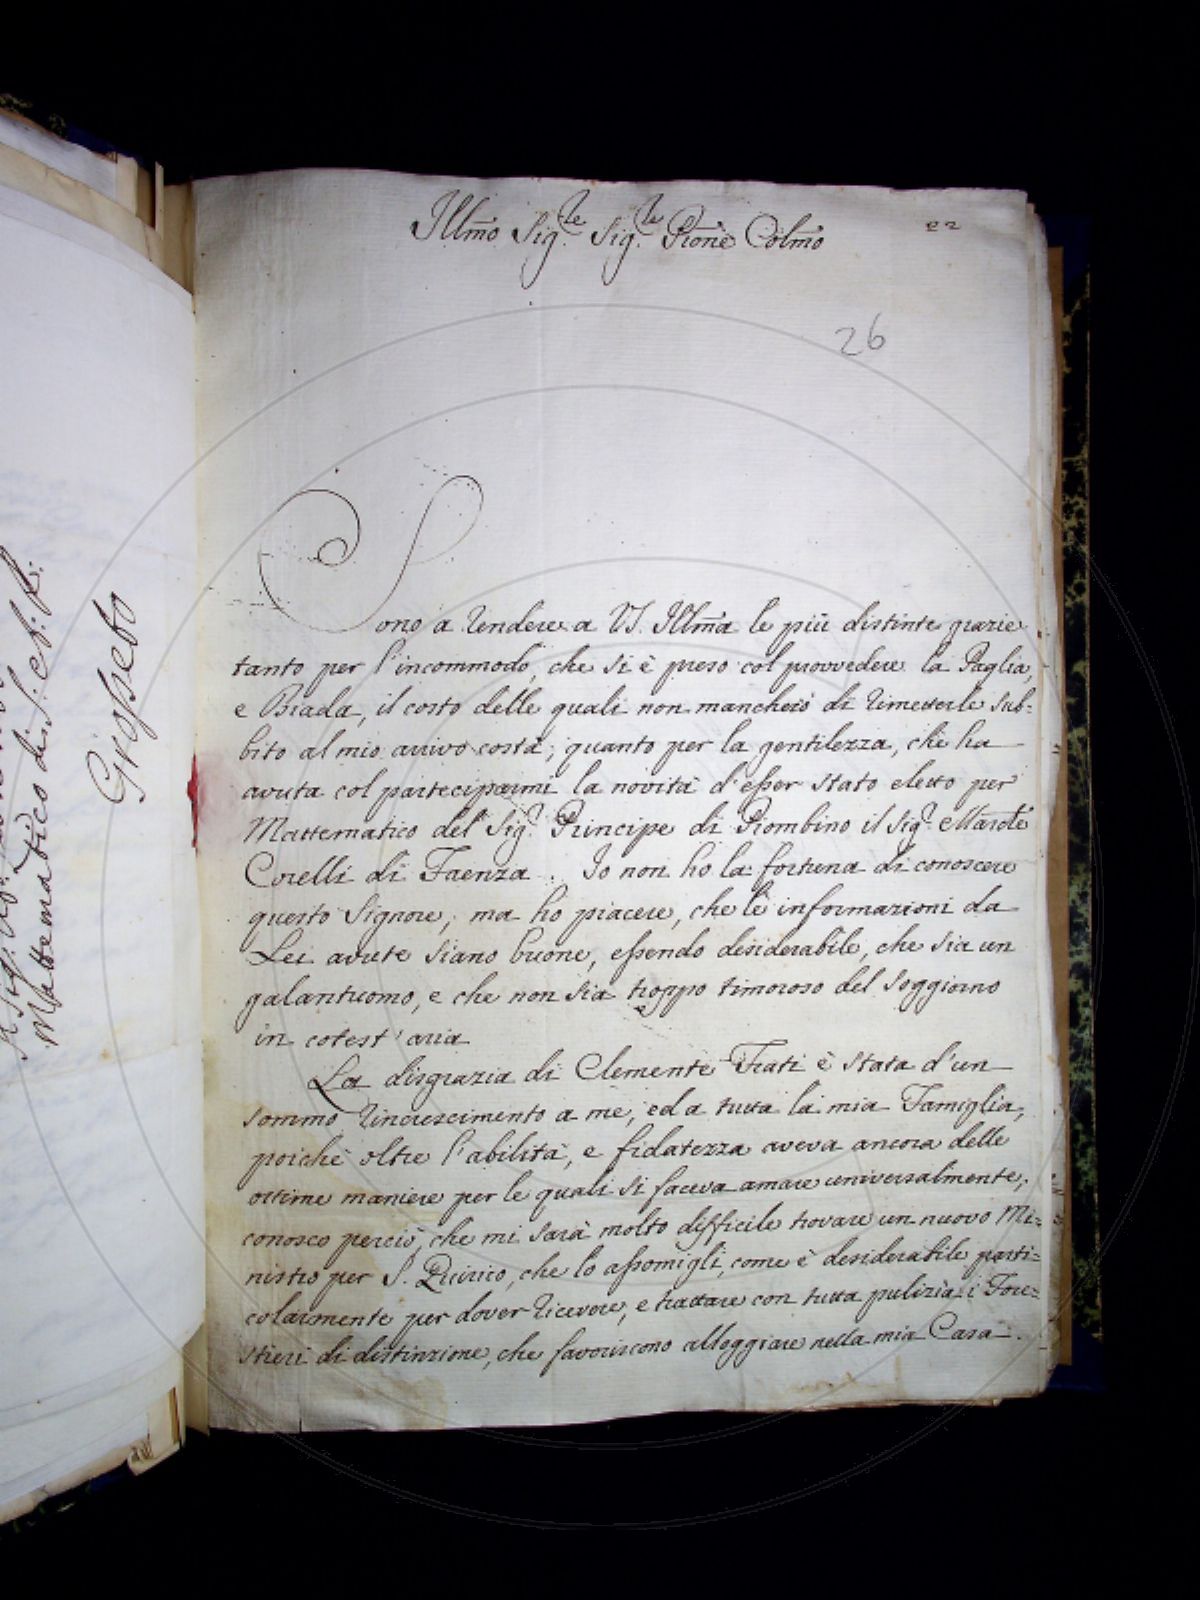 Illmo Sig.re Sig.re Prone Colmo
22
26
Sono a rendere a VS. Illma le più distinte grazie
tanto per l'incommodo, che si è preso col provvedere la Paglia,
e Biada, il costo delle quali non mancherò di rimetterle sub=
bito al mio arrivo costà; quanto per la gentilezza, che ha
avuta col parteciparmi la novità d'esser stato eletto per
Mattematico del Sig.r Principe di Piombino il Sig.r
Corelli di Faenza. Io non ho la fortuna di conoscere
questo Signore, ma ho piacere, che le informazioni da
Lei avute siano buone, essendo desiderabile, che sia un
galantuomo, e che non sia troppo timoroso del soggiorno
in cotest'aria
La disgrazia di Clemente Frati è stata d'un
sommo rincrescimento a me, ed a tutta la mia Famiglia,
poiché oltre l'abilità, e fidatezza aveva ancora delle
ottime maniere per le quali si faceva amare universalmente;
conosco perciò, che mi sarà molto difficile trovare un nuovo Mi=
nistro per S. Quirico, che lo assomigli, come è desiderabile parti=
colarmente per dover ricevere, e trattare con tutta pulizia i Fore=
stieri di distinzione, che favoriscono alloggiare nella mia Casa.
Mattematico di S.
Grosseto